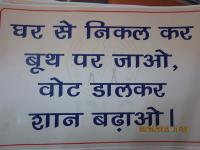 घर से निकल कर
बूथ पर जाओ,
वोट डालकर
शान बढ़ाओ।